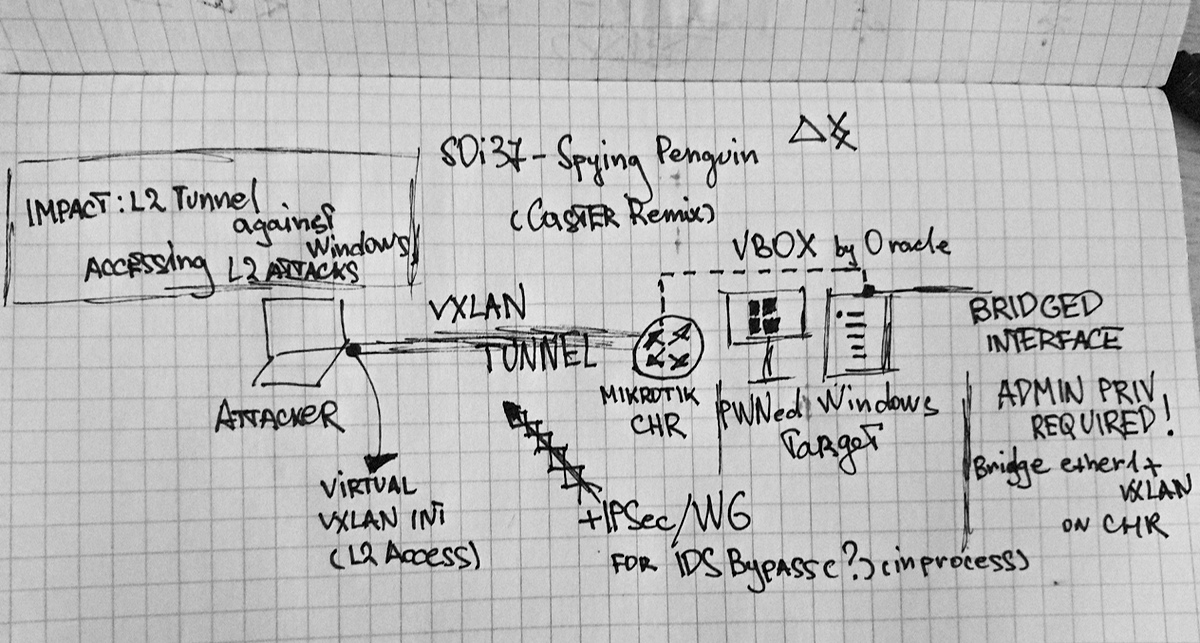 SDi37 - Spying Penguin
(CASTER Remix)
IMPACT: L2 Tunnel
against
Windows
ACCESSING L2 ATTACKS
VBOX by Oracle
VXLAN
TUNNEL
BRIDGED
INTERFACE
ATTACKER
MIKROTIK
CHR
PWNed Windows
Target
ADMIN PRIV
REQUIRED!
Bridge ether1 +
VXLAN
ON CHR
VIRTUAL
VXLAN INT
(L2 Access)
+IPSec/WG
FOR IDS Bypass(?) (in process)